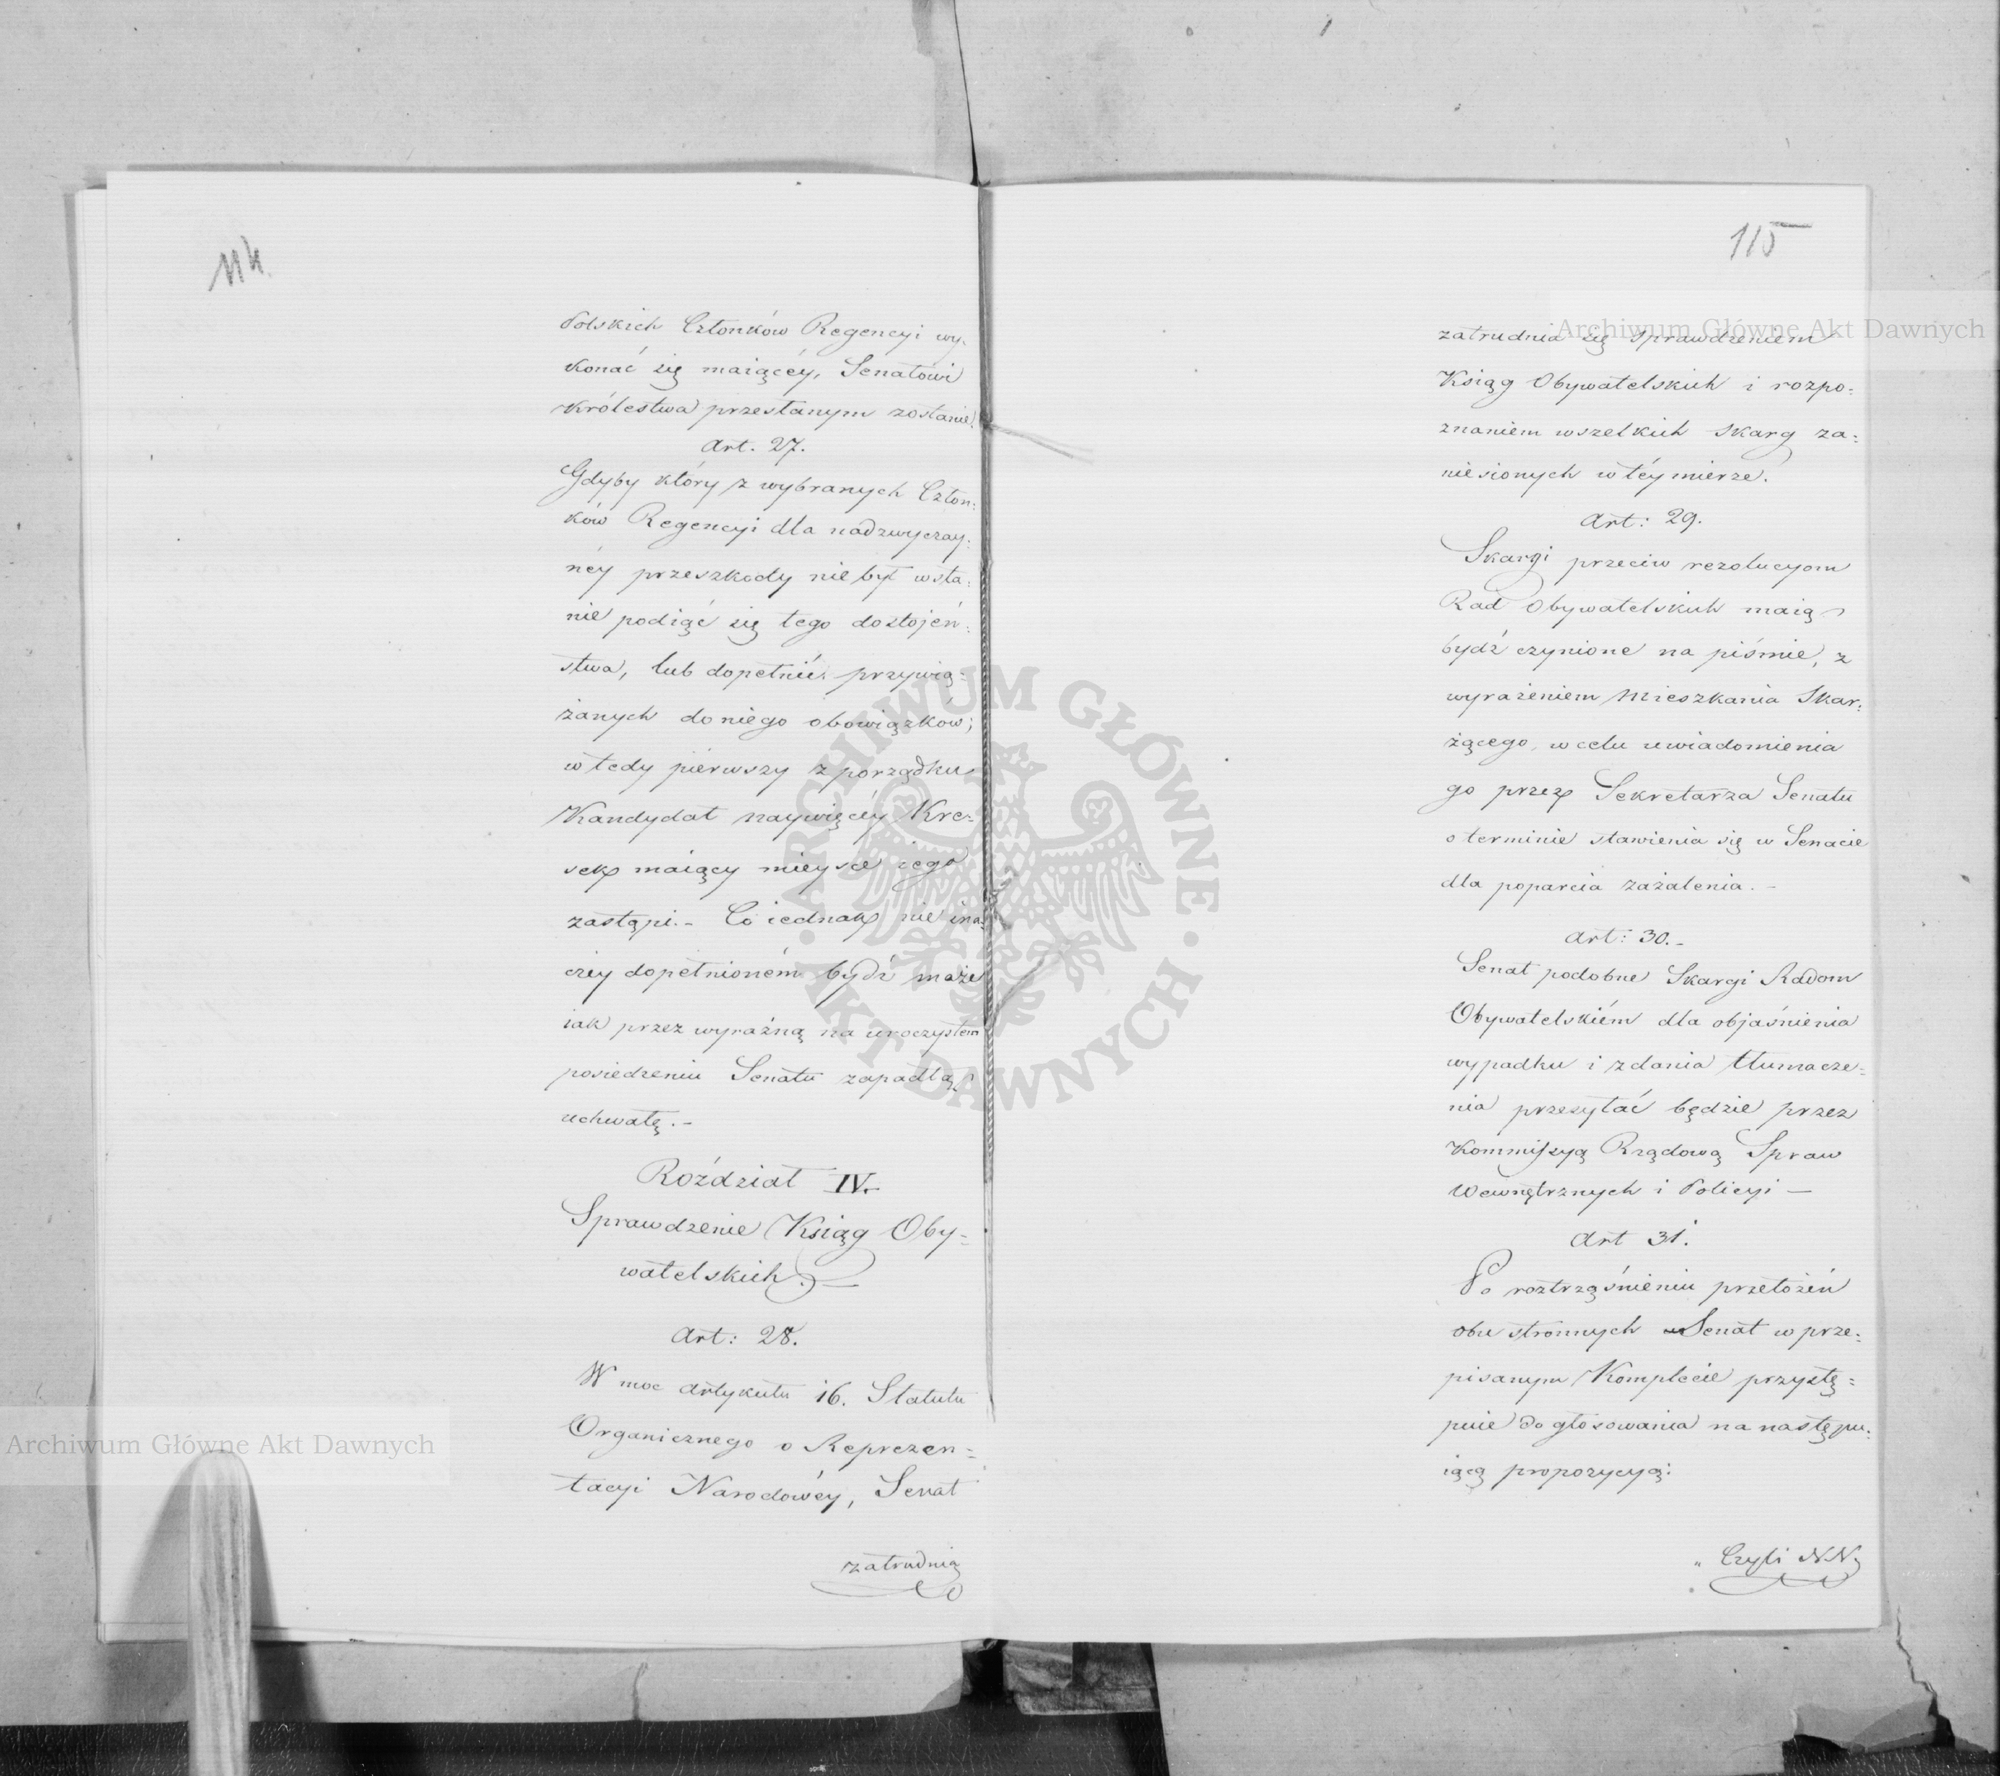 114.
Polskich Członków Regencyi wy-
konać się maiącéy, Senatowi
Królestwa przesłanym zostanie.
Art. 27.
Gdyby który z wybranych Człon:
ków Regencyi dla nadzwyczay:
néy przeszkody nie był w sta:
nie podiąć się tego dostojeń:
stwa, lub dopełnić przywią:
zanych do niego obowiązków;
wtedy piérwszy z porządku
Kandydat naywięcéy Kre-
sek maiący mieysce iego
zastąpi. - Co iednak nie ina:
czéy dopełnioném bydź może
iak przez wyraźną na uroczystem
posiedzeniu Senatu zapadłą
uchwałę. -
Roździał IV.
Sprawdzenie Ksiąg Oby=
watelskich. -
Art: 28.
W moc Artykułu 16. Statutu
Organicznego o Reprezen=
tacyi Narodowéy, Senat
zatrudnia
115
zatrudnia się sprawdzeniem
Ksiąg Obywatelskich i rozpo:
znaniem wszelkich skarg za:
niesionych w téy mierze.
Art: 29.
Skargi przeciw rezolucyom
Rad Obywatelskich maią
bydź czynione na piśmie, z
wyrażeniem Mieszkania Skar:
żącego, w celu uwiadomienia
go przez Sekretarza Senatu
o terminie stawienia się w Senacie
dla poparcia zażalenia. -
Art: 30. -
Senat podobne Skargi Radom
Obywatelskiém dla objaśnienia
wypadku i zdania tłumacze=
nia przesyłać będzie przez
Kommissyą Rządową Spraw
Wewnętrznych i Policyi —
Art 31.
Po roztrząśnieniu przełożeń
obu stronnych Senat w prze:
pisanym Komplecie przystę=
puie do głosowania na następu:
iącą propozycyą:
" Czyli N.N.
Archiwum Główne Akt Dawnych
Archiwum Główne Akt Dawnych
ARCHIWUM GŁÓWNE · AKT DAWNYCH ·